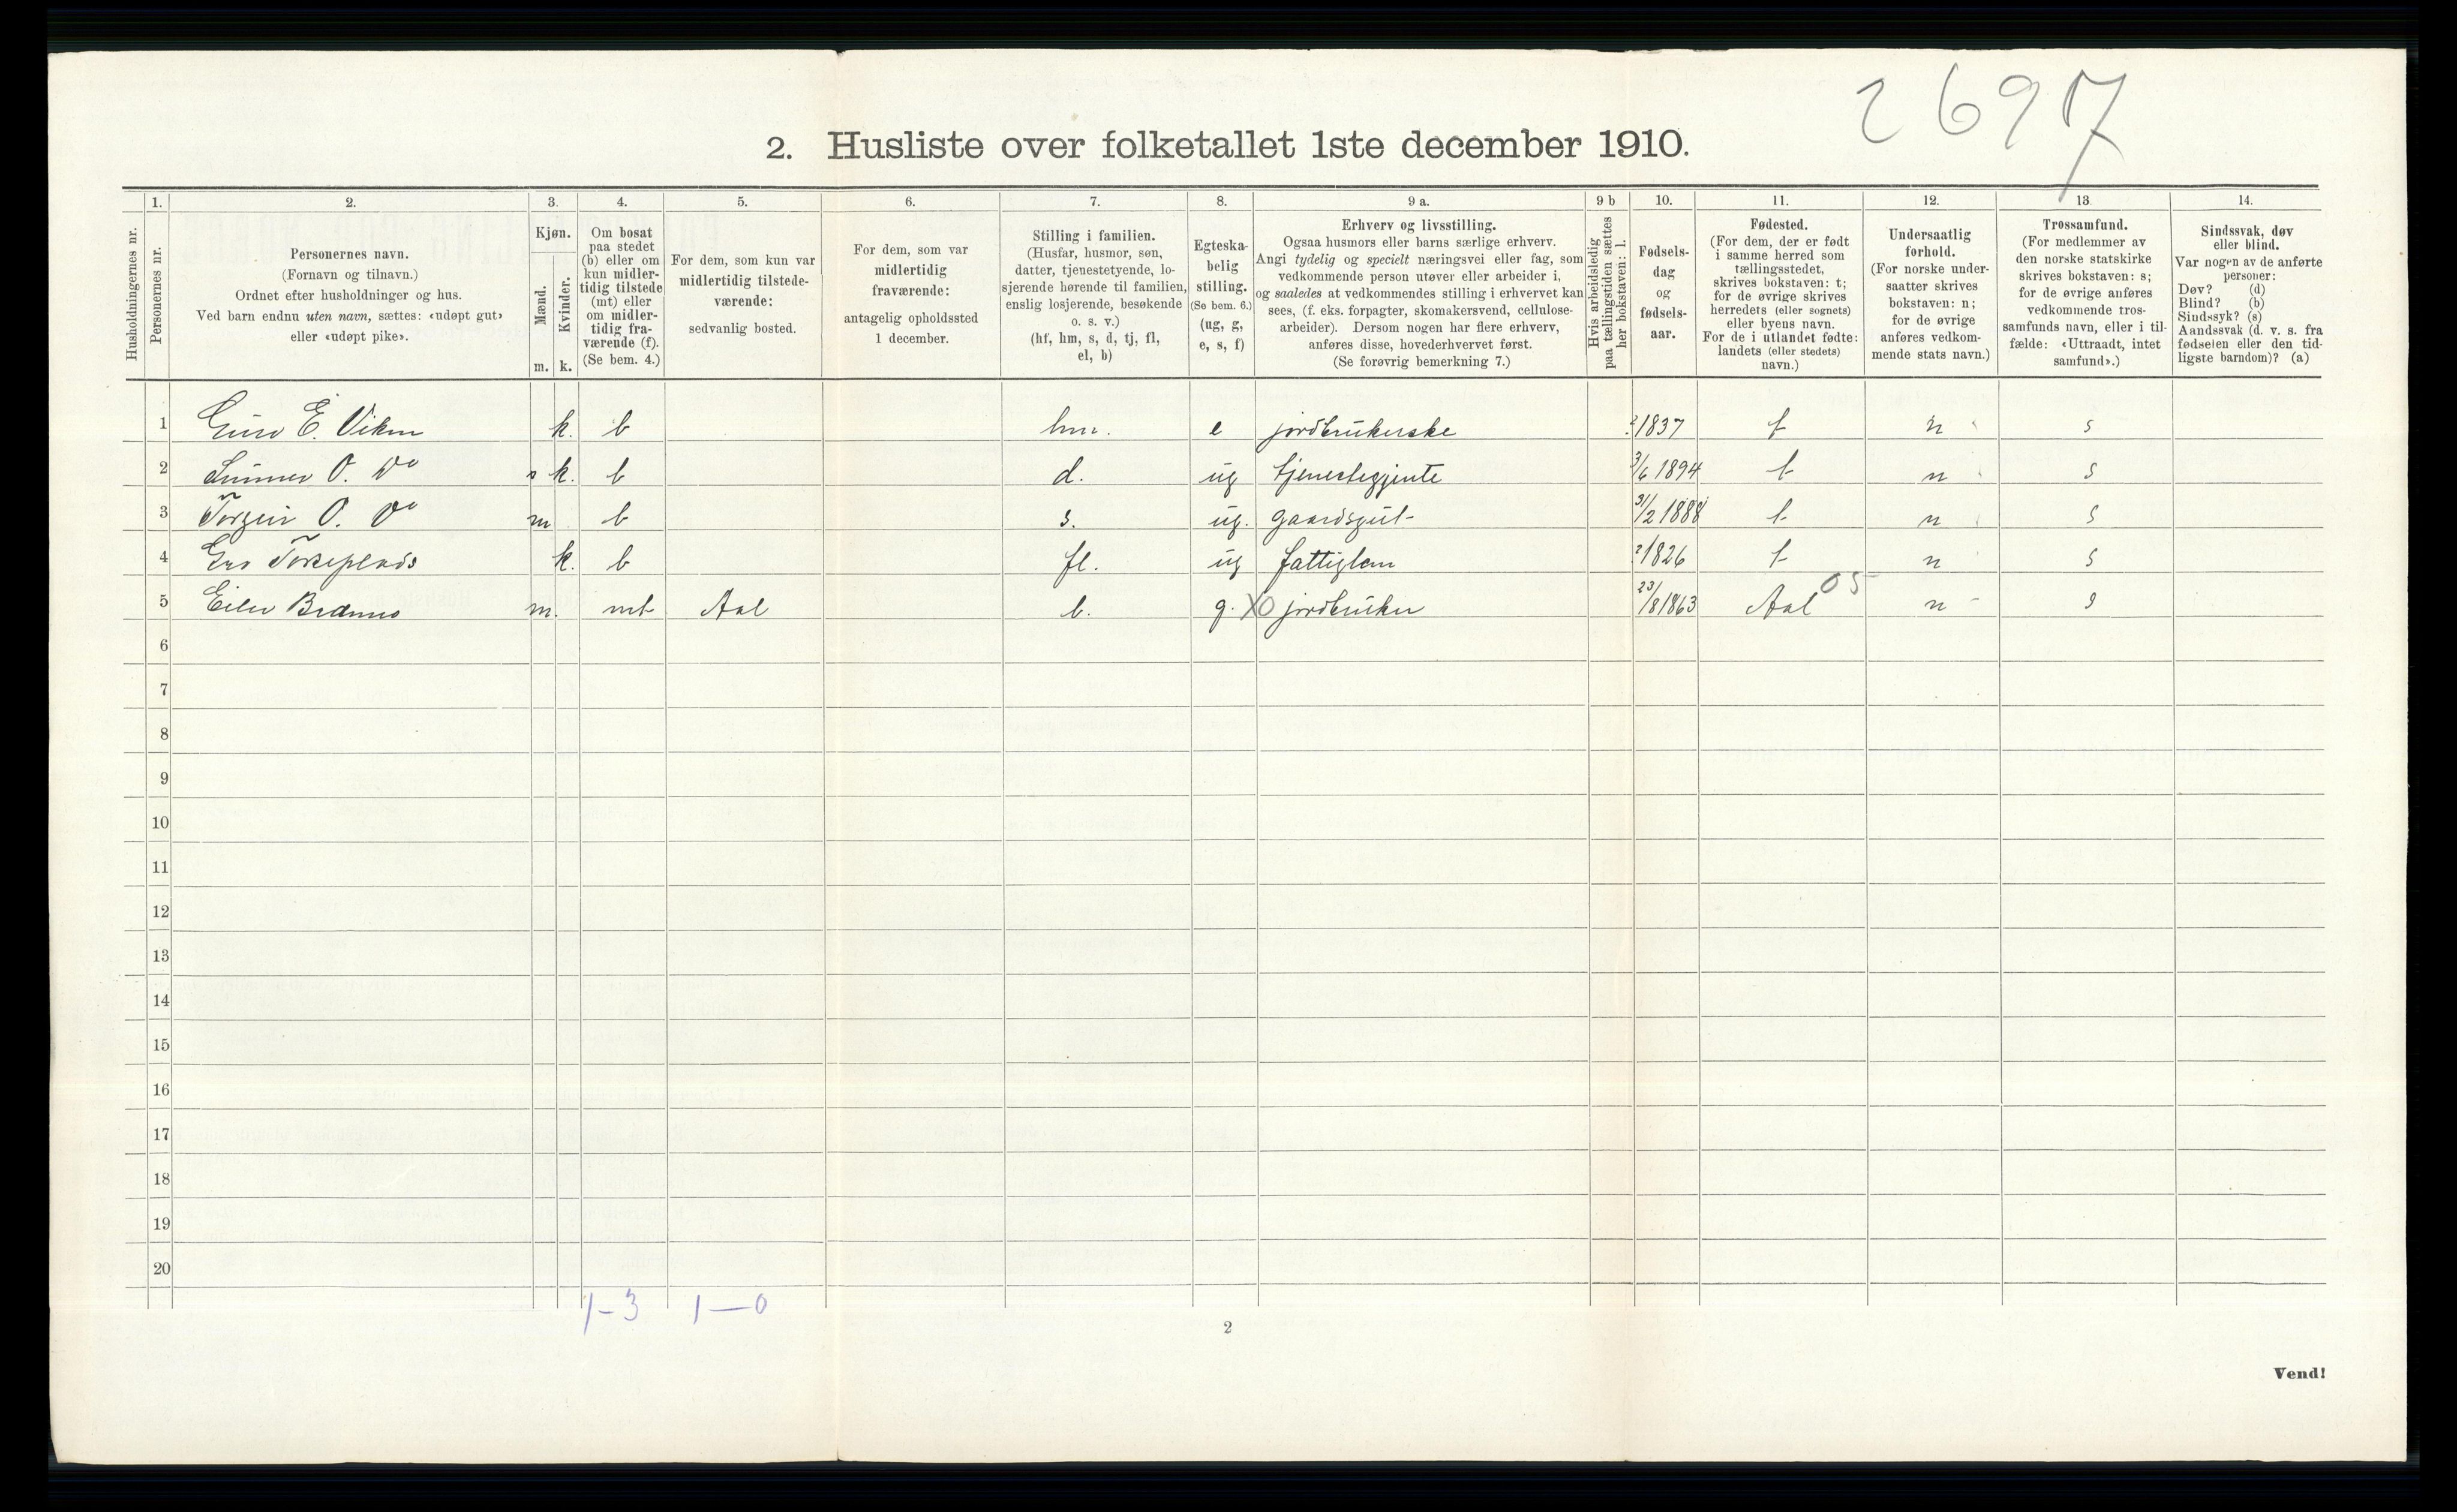 2697
2. Husliste over folketallet 1ste december 1910.
Husholdningernes nr.
1. Personernes nr.
2. Personernes navn.
(Fornavn og tilnavn.)
Ordnet efter husholdninger og hus.
Ved barn endnu uten navn, sættes: «udøpt gut»
eller «udøpt pike».
3. Kjøn.
Mænd. m.
Kvinder. k.
4. Om bosat
paa stedet
(b) eller om
kun midler-
tidig tilstede
(mt) eller
om midler-
tidig fra-
værende (f).
(Se bem. 4.)
5. For dem, som kun var
midlertidig tilstede-
værende:
sedvanlig bosted.
6. For dem, som var
midlertidig
fraværende:
antagelig opholdssted
1 december.
7. Stilling i familien.
(Husfar, husmor, søn,
datter, tjenestetyende, lo-
sjerende hørende til familien,
enslig losjerende, besøkende
o. s. v.)
(hf, hm, s, d, tj, fl,
el, b)
8. Egteska-
belig
stilling.
(Se bem. 6.)
(ug, g,
e, s, f)
9 a. Erhverv og livsstilling.
Ogsaa husmors eller barns særlige erhverv.
Angi tydelig og specielt næringsvei eller fag, som
vedkommende person utøver eller arbeider i,
og saaledes at vedkommendes stilling i erhvervet kan
sees, (f. eks. forpagter, skomakersvend, cellulose-
arbeider). Dersom nogen har flere erhverv,
anføres disse, hovederhvervet først.
(Se forøvrig bemerkning 7.)
9 b Hvis arbeidsledig
paa tællingstiden sættes
her bokstaven: l.
10. Fødsels-
dag
og
fødsels-
aar.
11. Fødested.
(For dem, der er født
i samme herred som
tællingsstedet,
skrives bokstaven: t;
for de øvrige skrives
herredets (eller sognets)
eller byens navn.
For de i utlandet fødte:
landets (eller stedets)
navn.)
12. Undersaatlig
forhold.
(For norske under-
saatter skrives
bokstaven: n;
for de øvrige
anføres vedkom-
mende stats navn.)
13. Trossamfund.
(For medlemmer av
den norske statskirke
skrives bokstaven: s;
for de øvrige anføres
vedkommende tros-
samfunds navn, eller i til-
fælde: «Uttraadt, intet
samfund».)
14. Sindssvak, døv
eller blind.
Var nogen av de anførte
personer:
Døv? (d)
Blind? (b)
Sindssyk? (s)
Aandssvak (d. v. s. fra
fødselen eller den tid-
ligste barndom)? (a)
1 Guro E. Viken k. b hm. e jordbrukerske ? 1837 t n s
2 O. Do k. b d. ug tjenestegjente 3/6 1894 t n s
3 Torgeir O. Do m b s. ug. gaardsgut 3/2 1888 t n s
4 k. b fl. ug fattiglem ? 1826 t n s
5 m. mt Aal b. g. XO jordbruker 23/8 1863 Aal 05 n s
6
7
8
9
10
11
12
13
14
15
16
17
18
19
20
1-3 1-0
2
Vend!